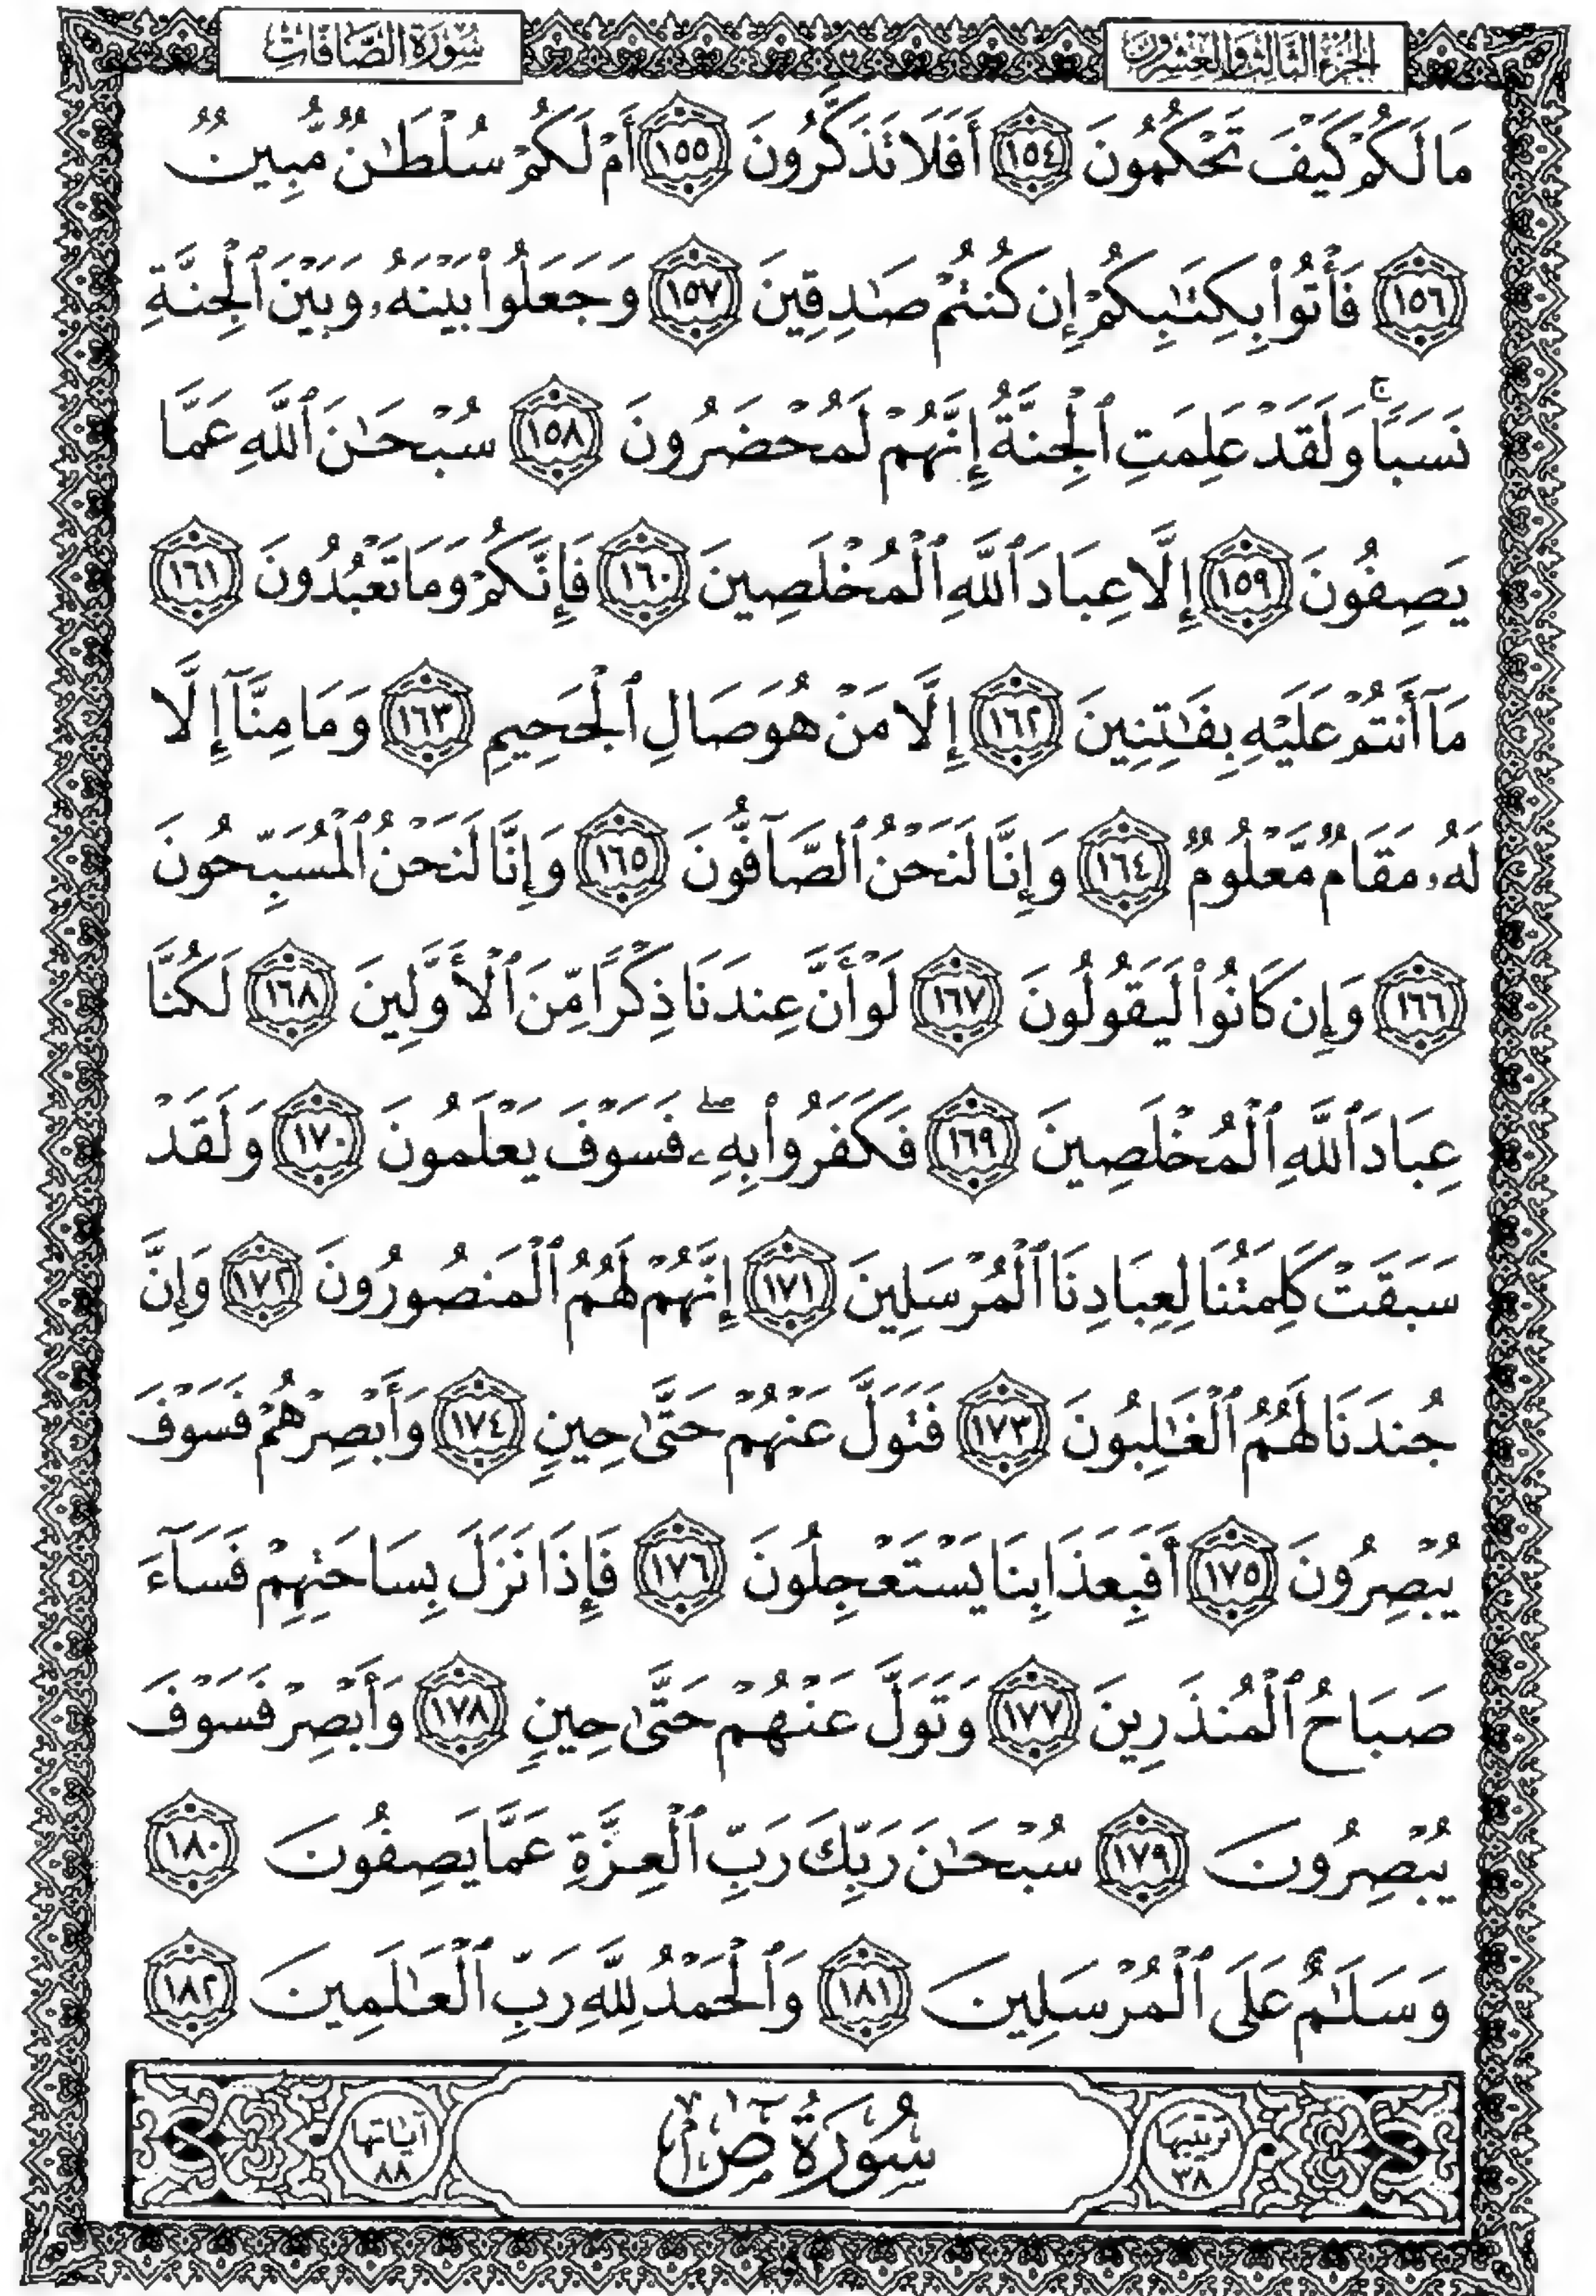 الجزء الثالث والعشرون
سورة الصافات
مَا لَكُمْ كَيْفَ تَحْكُمُونَ ١٥٤ أَفَلَا تَذَكَّرُونَ ١٥٥ أَمْ لَكُمْ سُلْطَٰنٌ مُّبِينٌ
١٥٦ فَأْتُوا۟ بِكِتَٰبِكُمْ إِن كُنتُمْ صَٰدِقِينَ ١٥٧ وَجَعَلُوا۟ بَيْنَهُۥ وَبَيْنَ ٱلْجِنَّةِ
نَسَبًا ۚ وَلَقَدْ عَلِمَتِ ٱلْجِنَّةُ إِنَّهُمْ لَمُحْضَرُونَ ١٥٨ سُبْحَٰنَ ٱللَّهِ عَمَّا
يَصِفُونَ ١٥٩ إِلَّا عِبَادَ ٱللَّهِ ٱلْمُخْلَصِينَ ١٦٠ فَإِنَّكُمْ وَمَا تَعْبُدُونَ ١٦١
مَآ أَنتُمْ عَلَيْهِ بِفَٰتِنِينَ ١٦٢ إِلَّا مَنْ هُوَ صَالِ ٱلْجَحِيمِ ١٦٣ وَمَا مِنَّآ إِلَّا
لَهُۥ مَقَامٌ مَّعْلُومٌ ١٦٤ وَإِنَّا لَنَحْنُ ٱلصَّآفُّونَ ١٦٥ وَإِنَّا لَنَحْنُ ٱلْمُسَبِّحُونَ
١٦٦ وَإِن كَانُوا۟ لَيَقُولُونَ ١٦٧ لَوْ أَنَّ عِندَنَا ذِكْرًا مِّنَ ٱلْأَوَّلِينَ ١٦٨ لَكُنَّا
عِبَادَ ٱللَّهِ ٱلْمُخْلَصِينَ ١٦٩ فَكَفَرُوا۟ بِهِۦ ۖ فَسَوْفَ يَعْلَمُونَ ١٧٠ وَلَقَدْ
سَبَقَتْ كَلِمَتُنَا لِعِبَادِنَا ٱلْمُرْسَلِينَ ١٧١ إِنَّهُمْ لَهُمُ ٱلْمَنصُورُونَ ١٧٢ وَإِنَّ
جُندَنَا لَهُمُ ٱلْغَٰلِبُونَ ١٧٣ فَتَوَلَّ عَنْهُمْ حَتَّىٰ حِينٍ ١٧٤ وَأَبْصِرْهُمْ فَسَوْفَ
يُبْصِرُونَ ١٧٥ أَفَبِعَذَابِنَا يَسْتَعْجِلُونَ ١٧٦ فَإِذَا نَزَلَ بِسَاحَتِهِمْ فَسَآءَ
صَبَاحُ ٱلْمُنذَرِينَ ١٧٧ وَتَوَلَّ عَنْهُمْ حَتَّىٰ حِينٍ ١٧٨ وَأَبْصِرْ فَسَوْفَ
يُبْصِرُونَ ١٧٩ سُبْحَٰنَ رَبِّكَ رَبِّ ٱلْعِزَّةِ عَمَّا يَصِفُونَ ١٨٠
وَسَلَٰمٌ عَلَى ٱلْمُرْسَلِينَ ١٨١ وَٱلْحَمْدُ لِلَّهِ رَبِّ ٱلْعَٰلَمِينَ ١٨٢
ترتيبها
٣٨
سُورَةُ ص
آياتها
٨٨